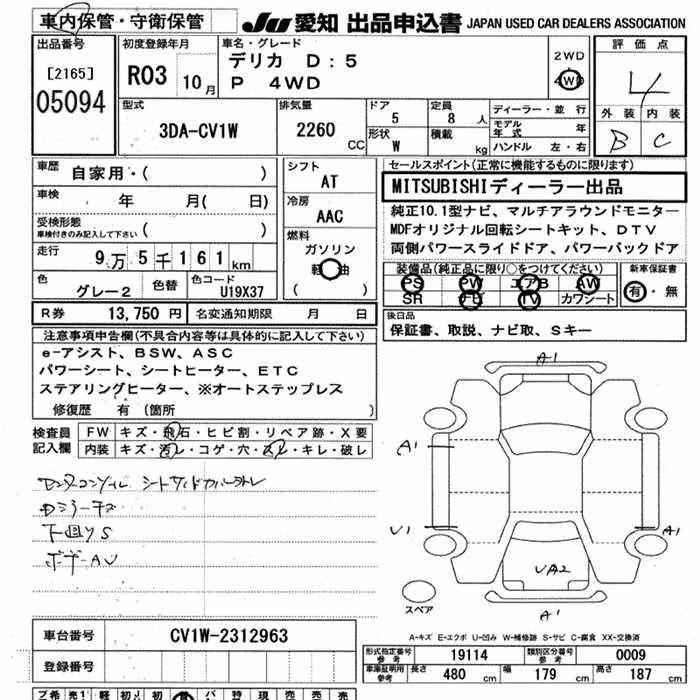 車内保管・守衛保管 JU 愛知 出品申込書 JAPAN USED CAR DEALERS ASSOCIATION
出品番号 初度登録年月 車名・グレード 評価点
[2165] R03 10月 デリカ D:5 2WD 4
05094 P 4WD 4WD
型式 排気量 ドア 定員 ディーラー・並行 外装 内装
3DA-CV1W 2260 CC 5 8人 モデル年式 年 B C
形状 積載
W kg ハンドル 左・右
車歴 自家用・( ) シフト セールスポイント(正常に機能するものに限ります)
AT MITSUBISHIディーラー出品
車検 年 月( 日) 冷房 純正10.1型ナビ、マルチアラウンドモニター
受検形態 車検付きのみ記入して下さい ( ) AAC MDFオリジナル回転シートキット、DTV
走行 9万5千161km 燃料 両側パワースライドドア、パワーバックドア
ガソリン 装備品(純正品に限り○をつけてください) 新車保証書
色 色替 色コード 軽油 PS PW エアB AW 有・無
グレー2 U19X37 ( ) SR TV カワシート
R券 13,750 円 名変通知期限 月 日 後日品
注意事項申告欄(不具合内容等は具体的に記入して下さい) 保証書、取説、ナビ取、Sキー
e-アシスト、BSW、ASC
パワーシート、シートヒーター、ETC
ステアリングヒーター、※オートステップレス
修復歴 有(箇所 )
検査員 FW キズ・飛石・ヒビ割・リペア跡・X要
記入欄 内装 キズ・汚レ・コゲ・穴・スレ・キレ・破レ
A1
A1
U1 A1
UA2
A1
スペア
A-キズ E-エクボ U-凹み W-補修跡 S-サビ C-腐食 XX-交換済
車台番号 CV1W-2312963
登録番号
形式指定番号 参考 19114 類別区分番号 参考 0009
車庫証明用 参考 長さ 480 cm 幅 179 cm 高さ 187 cm